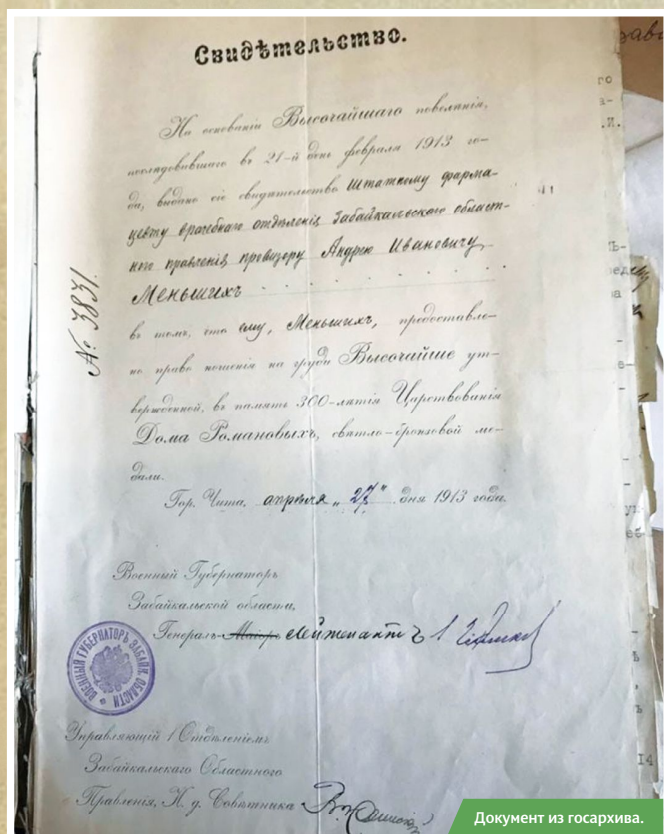 Свидѣтельство.
На основаніи Высочайшаго повелѣнія,
послѣдовавшаго въ 21-й день февраля 1913 го-
да, выдано сіе свидѣтельство штатному фарма-
цевту врачебнаго отдѣленія Забайкальскаго област-
ного правленія провизору Андрею Ивановичу
Меньшихъ
въ томъ, что ему, Меньшихъ, предоставле-
но право ношенія на груди Высочайше ут-
вержденной, въ память 300-лѣтія Царствованія
Дома Романовыхъ, свѣтло-бронзовой ме-
дали.
Гор. Чита, апрѣля „27" дня 1913 года.
№ 3831.
Военный Губернаторъ
Забайкальской области,
Генералъ-Маіоръ Лейтенантъ
ВОЕННЫЙ ГУБЕРНАТОРЪ ЗАБАЙК. ОБЛАСТИ
Управляющій 1 Отдѣленіемъ
Забайкальскаго Областного
Правленія, И. д. Совѣтника
Документ из госархива.